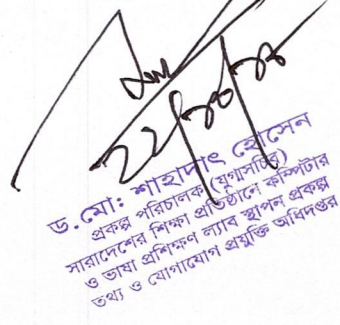 ২২/১০/১৮
ড. মো: শাহাদাৎ হোসেন
প্রকল্প পরিচালক (যুগ্মসচিব)
সারাদেশের শিক্ষা প্রতিষ্ঠানে কম্পিউটার
ও ভাষা প্রশিক্ষণ ল্যাব স্থাপন প্রকল্প
তথ্য ও যোগাযোগ প্রযুক্তি অধিদপ্তর